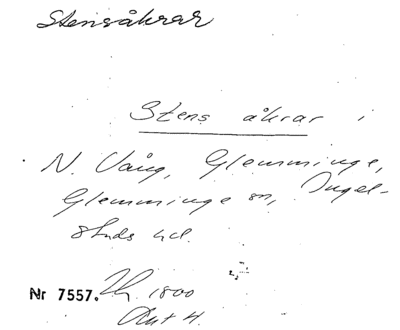 Stensåkrar
Stens åkrar i
N. Vång, Glemminge,
Glemminge sn, Ingel-
stads hd.
Nr 7557. 1800
Akt 4.